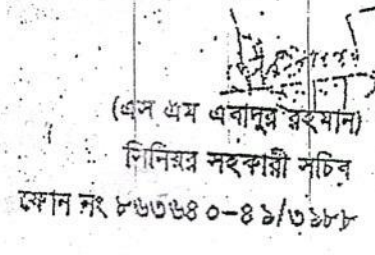 (এস এম এবাদুর রহমান)
সিনিয়র সহকারী সচিব
ফোন নং ৮৬৩৬৪০-৪৯/৩১৮৮